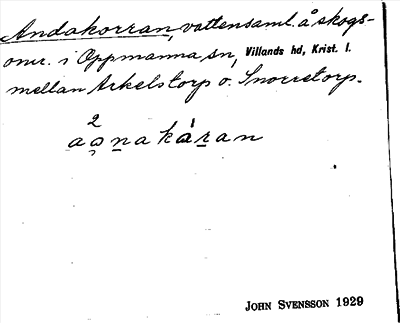 Andakorran, vattensaml. å skogs-
omr. i Oppmanna sn, Villands hd, Krist. l.
mellan Arkelstorp o. Snorretorp.
2
aa̱ṉakáṟan
JOHN SVENSSON 1929